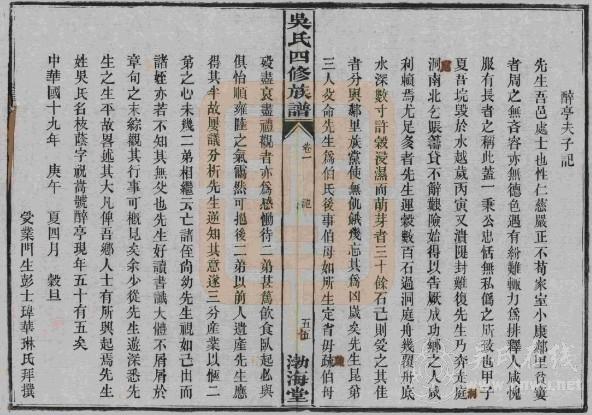 醉亭夫子記
先生吾邑處士也性仁慈嚴正不苟家室小康鄰里貧窶
者周之無吝容亦無德色遇有紛難輒力為排釋人咸愧
服有長者之稱此蓋一秉公忠恬無私偽之所致也甲子
夏吾垸毀於水越歲丙寅又潰隄封難復先生乃奔走庭
洞南北乞賑籌貸不辭艱險始得以告厥成功鄉之人咸
利賴焉尤足多者先生運穀數百石過洞庭舟幾覆舟底
水深數寸許穀浸濕而萌芽者三十餘石己則受之其佳
者分與鄰里族黨使無飢餓幾忘其為凶歲矣先生昆弟
三人父命先生為伯氏後事伯母如所生定省毋疏伯母
歿盡哀盡禮觀者亦為感慟待二弟甚篤飲食臥起必與
俱怡順雍睦之氣靄然可挹後二弟以前人遺產先生應
得其半故屢議分析先生逆知其意遂三分產業以愜二
弟之心未幾二弟相繼云亡諸侄尚幼先生視如己出而
諸姪亦若不知其無父也先生好讀書識大體不屑屑於
章句之末綜觀其行事可概見矣余少從先生遊深悉先
生之生平故畧述其大凡俾吾鄉人士有所興起焉先生
姓吳氏名枝蔭字祝喬號醉亭現年五十有五矣
中華國十九年 庚午 夏四月 穀旦
受業門生彭士瑋華琳氏拜撰
吳氏四修族譜
卷一
五
渤海堂